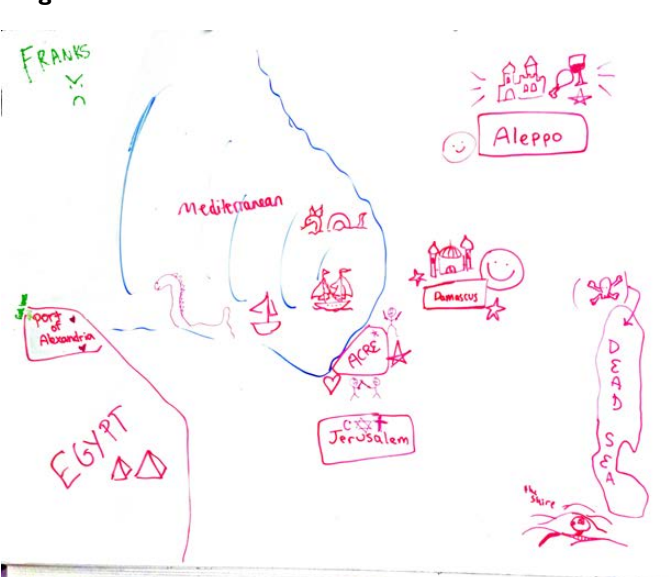 FRANKS
Aleppo
Mediterranean
Damascus
port
of
Alexandria
ACRE
DEAD
SEA
Jerusalem
EGYPT
the
shire